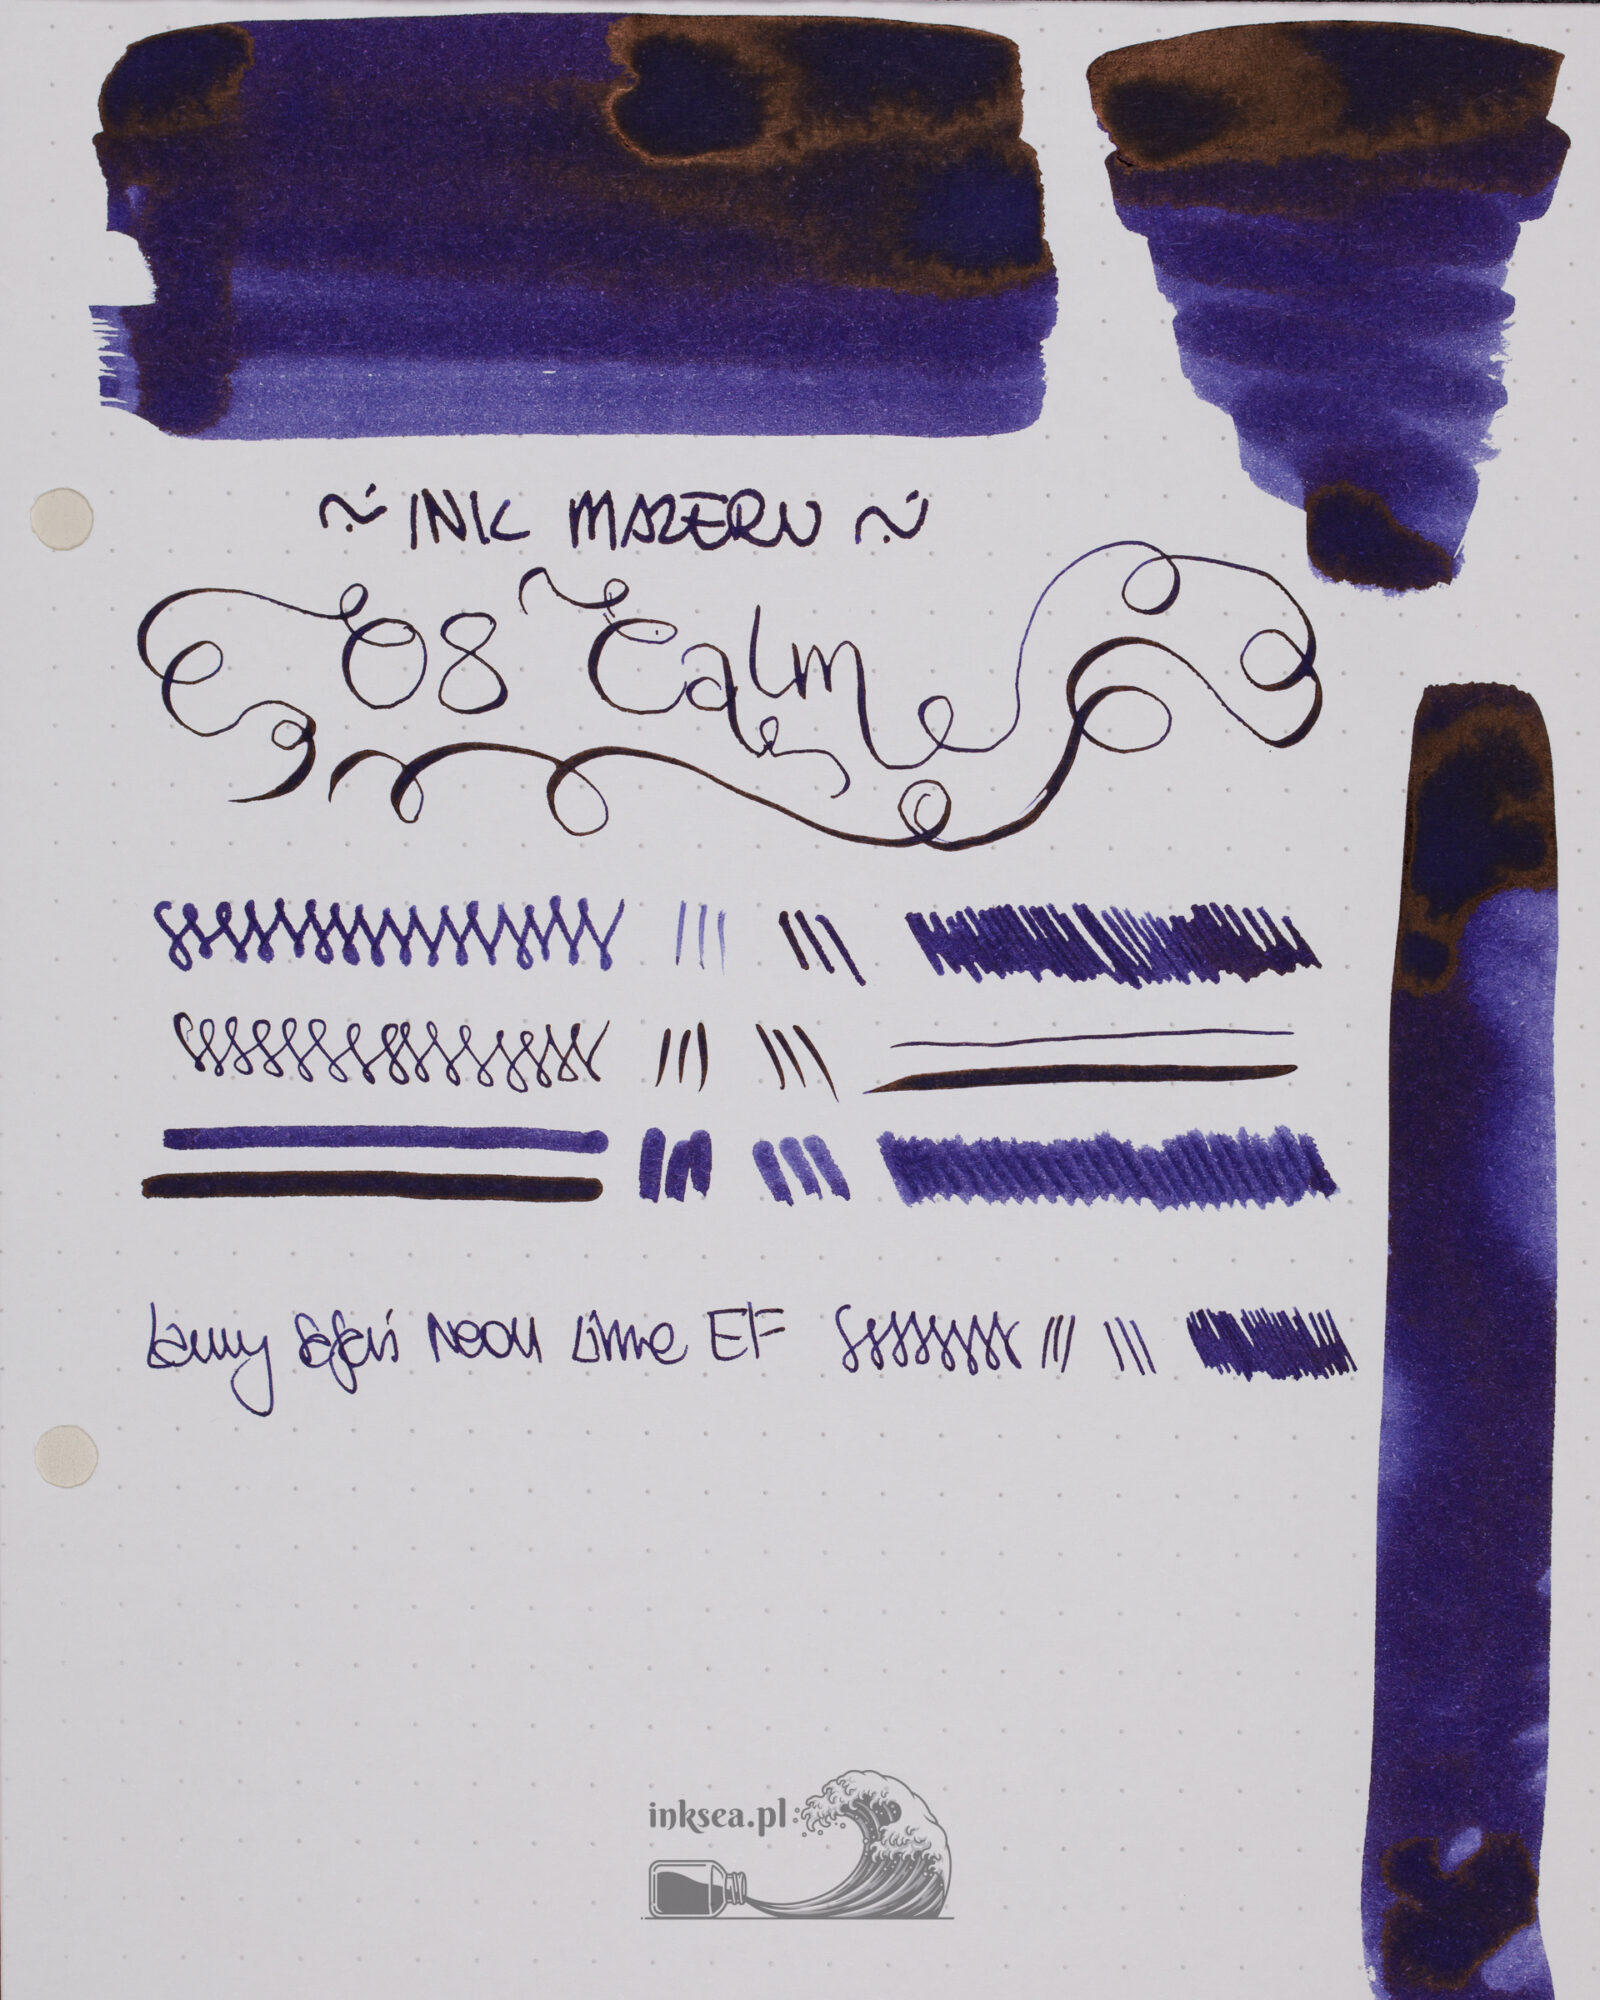 ~ INK MAZERU ~
08 Calm
Lamy Safari Neon Lime EF
inksea.pl